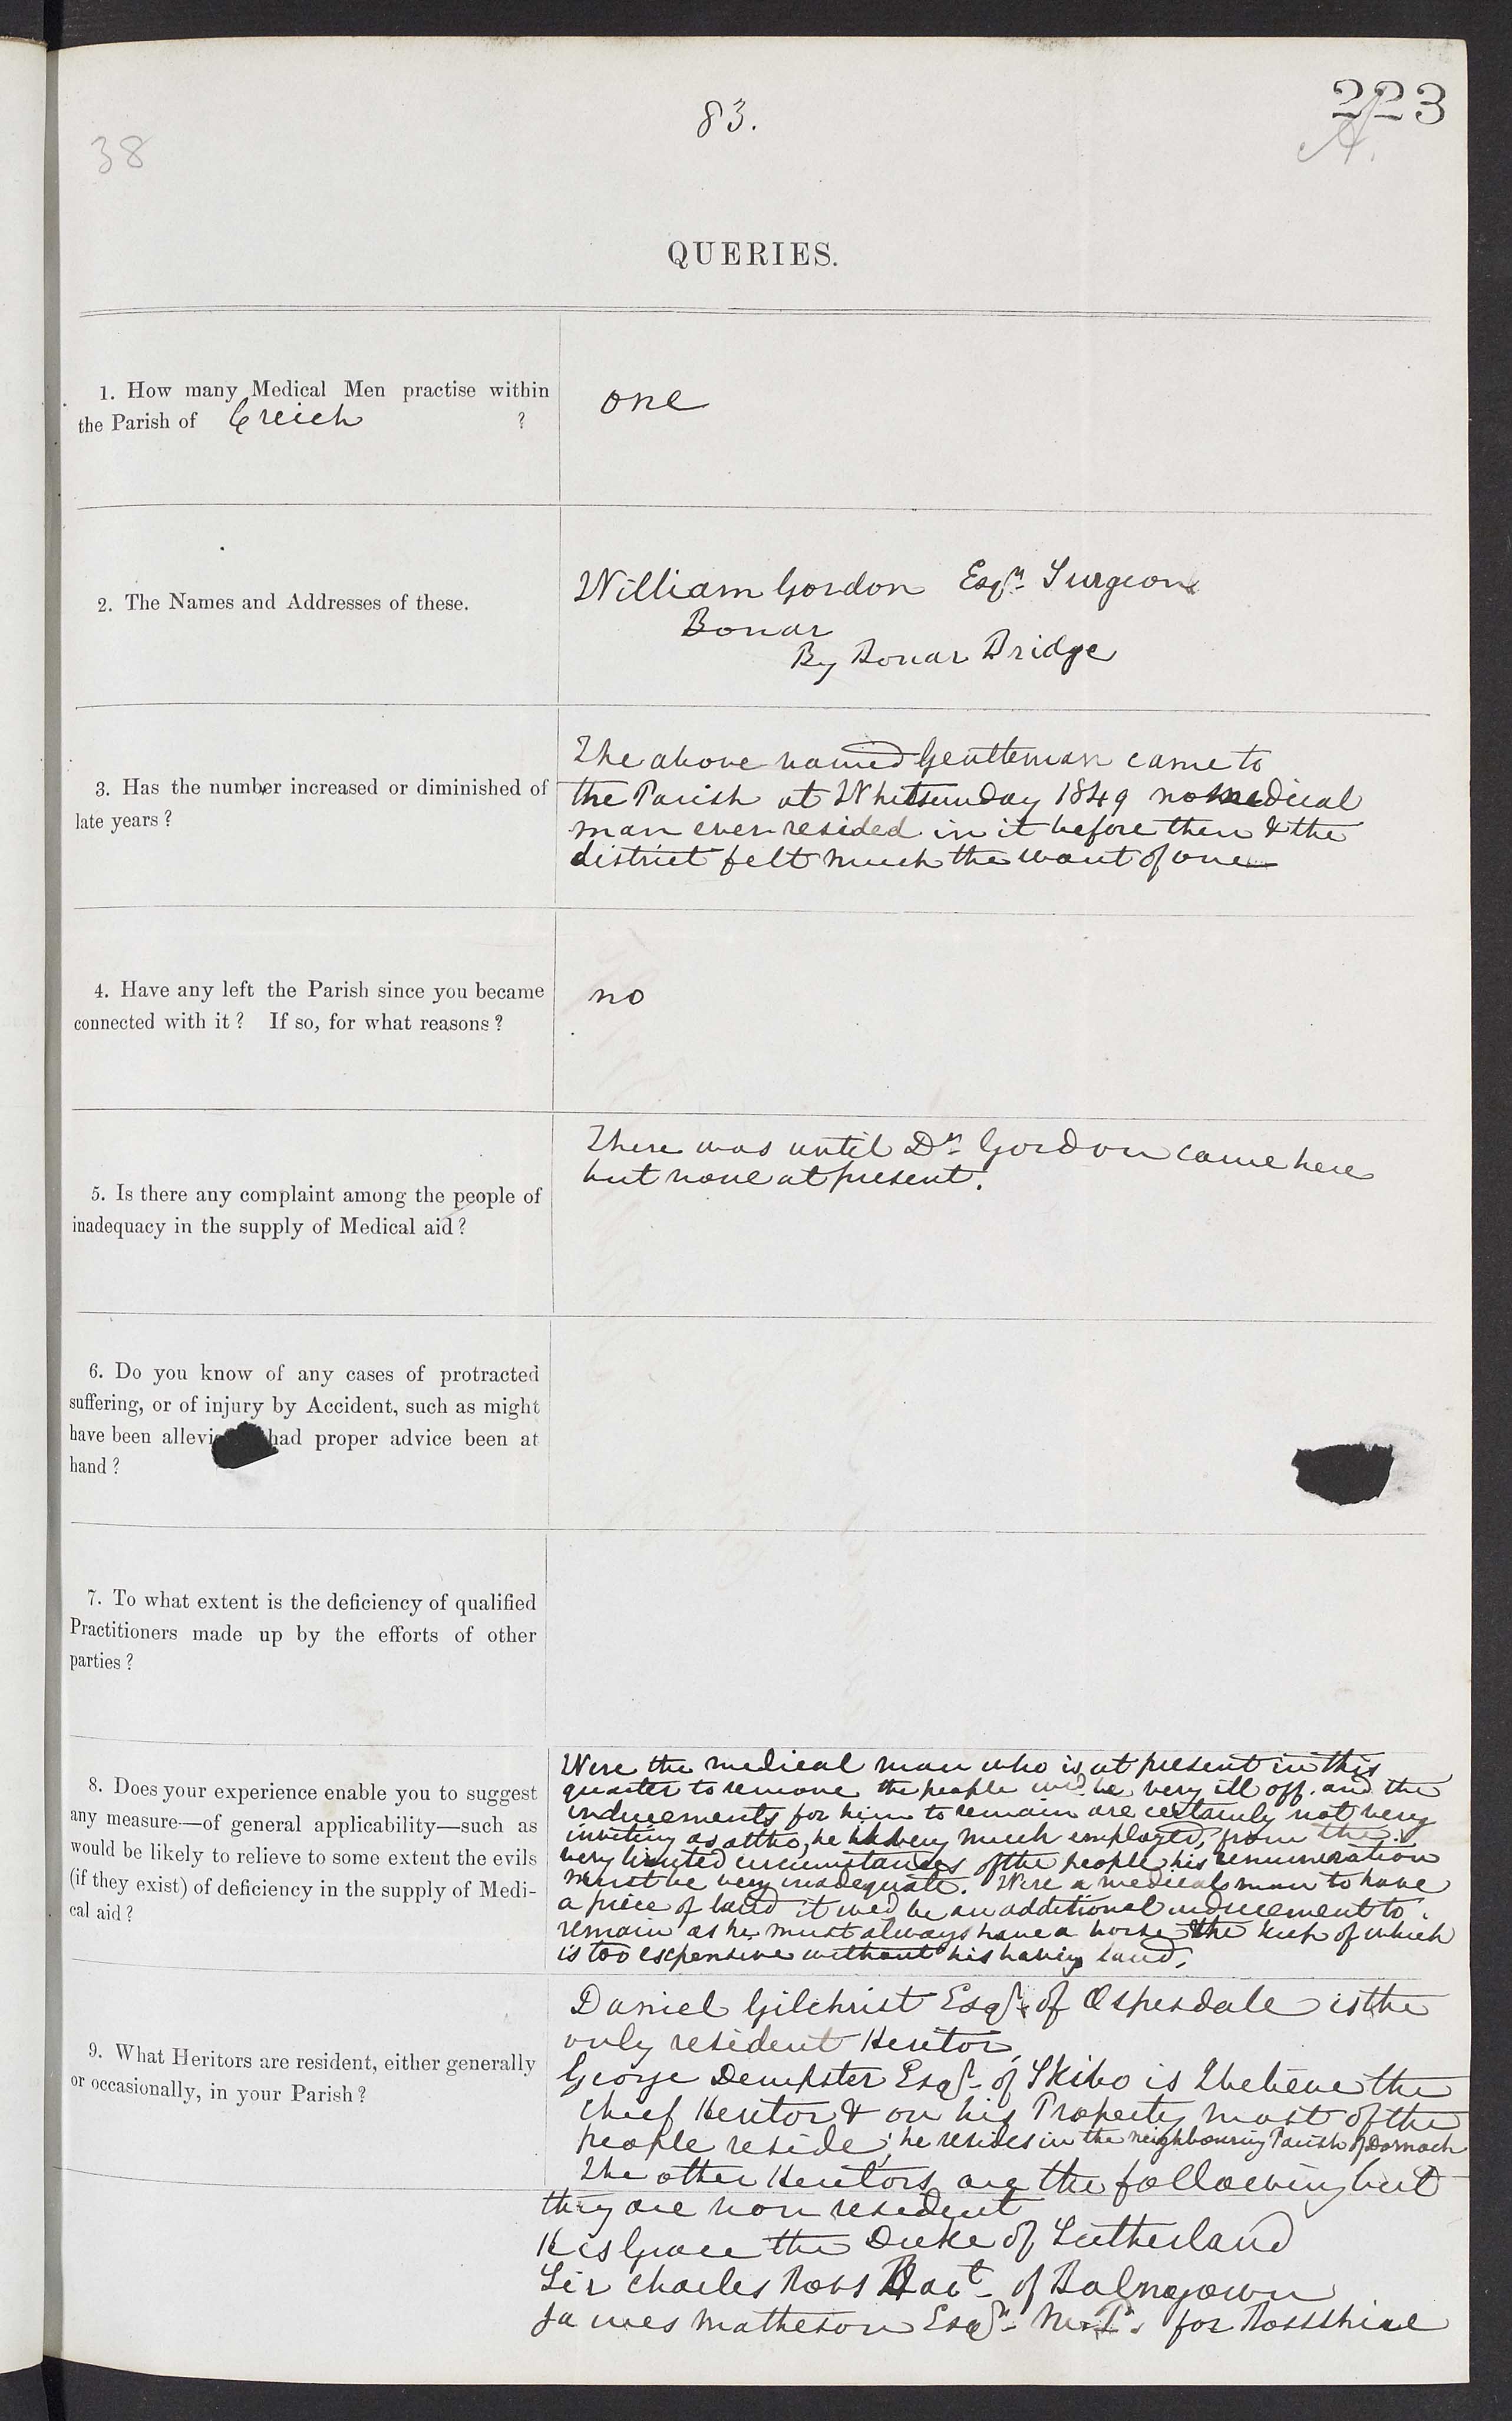 223
83.
38
A.
QUERIES.
1. How many Medical Men practise within
the Parish of Creich ?
one
2. The Names and Addresses of these.
William Gordon Esqr. Surgeon
Bonar
By Bonar Bridge
3. Has the number increased or diminished of
late years ?
The above named Gentleman came to
the Parish at Whitsunday 1849 no medical
man ever resided in it before then & the
district felt much the want of one
4. Have any left the Parish since you became
connected with it ? If so, for what reasons ?
no
5. Is there any complaint among the people of
inadequacy in the supply of Medical aid ?
There was until Dr. Gordon came here
but none at present.
6. Do you know of any cases of protracted
suffering, or of injury by Accident, such as might
have been allevi had proper advice been at
hand ?
7. To what extent is the deficiency of qualified
Practitioners made up by the efforts of other
parties ?
8. Does your experience enable you to suggest
any measure—of general applicability—such as
would be likely to relieve to some extent the evils
(if they exist) of deficiency in the supply of Medi-
cal aid ?
Were the medical man who is at present in this
quarter to remove the people wd. be very ill off. and the
inducements for him to remain are certainly not very
inviting as altho, he is very much employed, from the
very limited circumstances of the people his renumeration
must be very inadequate. Were a medical man to have
a piece of land it wed be an additional inducement to
remain as he must always have a horse the keep of which
is too expensive without his having land.
9. What Heritors are resident, either generally
or occasionally, in your Parish ?
Daniel Gilchrist Esqr. of Ospisdale is the
only resident Heritor,
George Dempster Esqr. of Skibo is I believe the
chief Heritor & on his Property most of the
people reside; he resides in the neighbouring Parish of Dornoch
The other Heritors are the following but
they are non resident
His Grace the Duke of Sutherland
Sir Charles Ross Bart. of Balnagown
James Matheson Esqr. M.P. for Rossshire